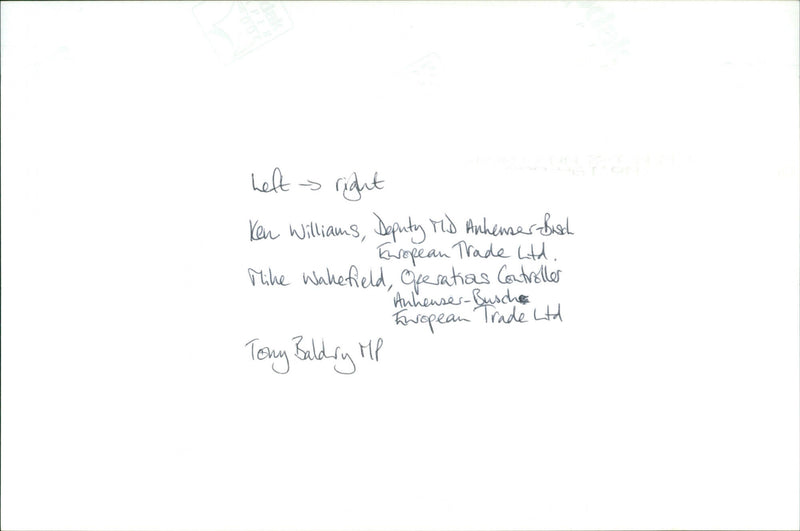 Left → right
Ken Williams, Deputy MD Anheuser-Busch
European Trade Ltd.
Mike Wakefield, Operations Controller
Anheuser-Busch
European Trade Ltd
Tony Baldry MP